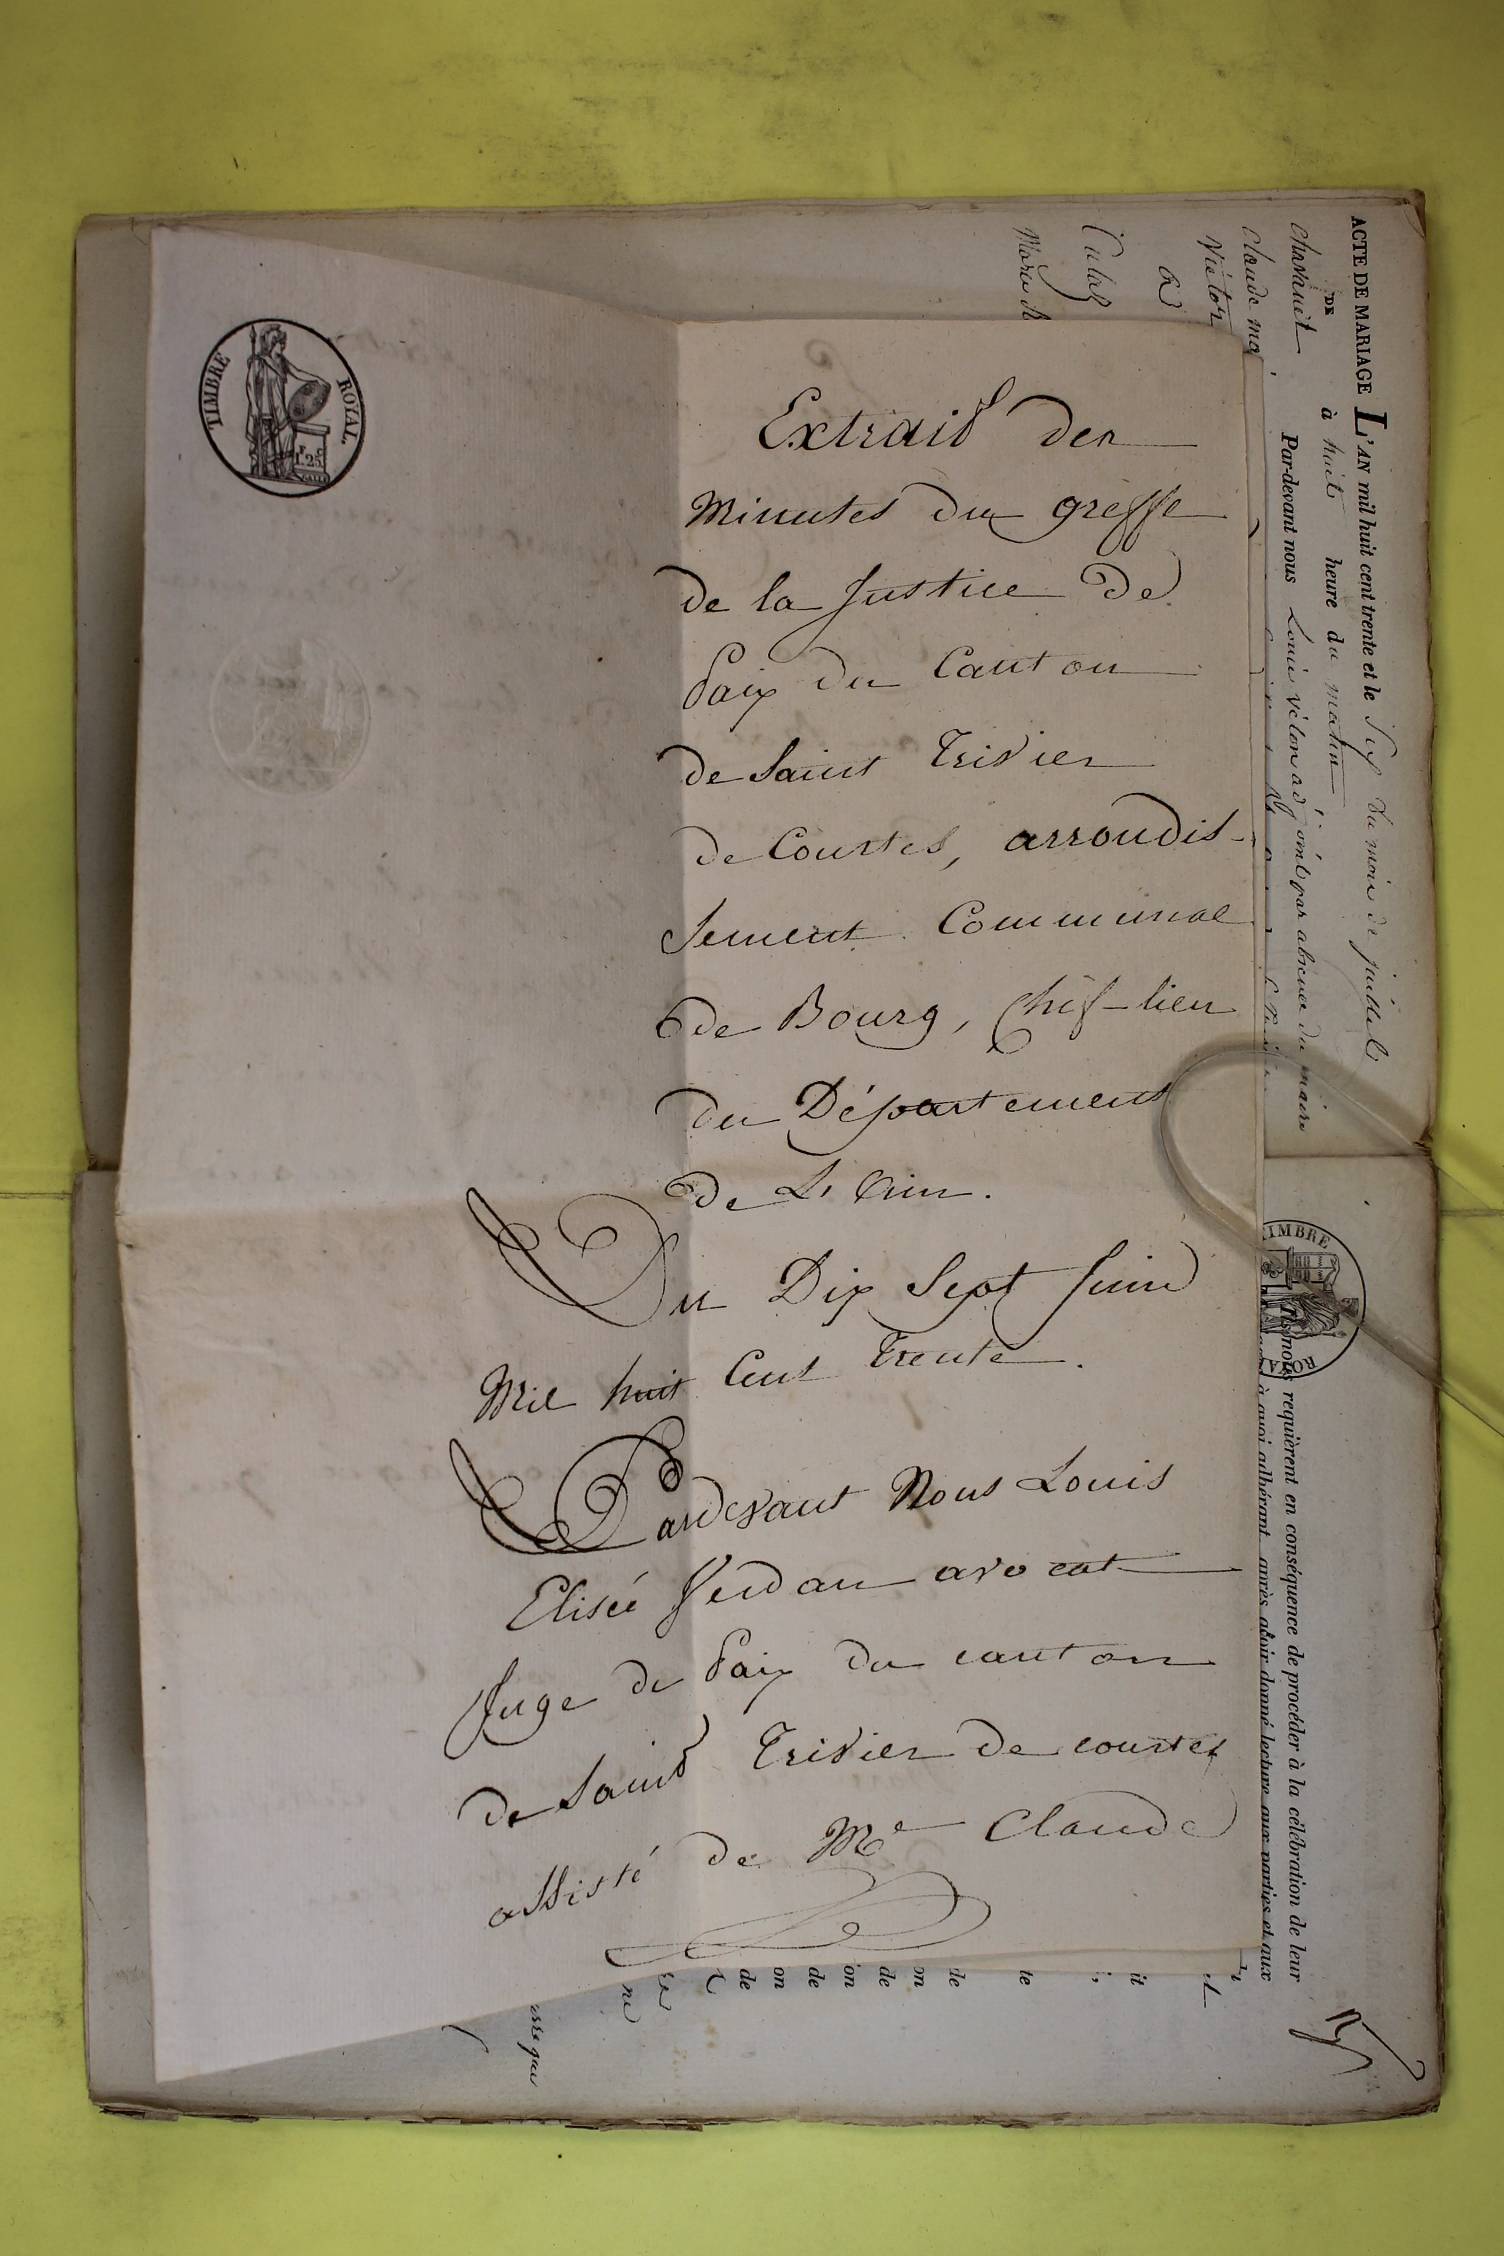 TIMBRE ROYAL
1F 25C
Extrait des
Minutes du greffe
de la Justice de
Paix du Canton
de Saint Trivier
de Courtes, arrondis-
sement Communal
de Bourg, Chef-lieu
du Département
de L'Ain.
Du Dix Sept Juin
Mil huit Cent Trente.
Pardevant Nous Louis
Elisée Verdan avocat
Juge de Paix du canton
de Saint Trivier de courtes
assisté de Me Claude
ACTE DE MARIAGE
DE
chavanit
Claude ma
Victor
&
Marie
L'AN mil huit cent trente et le Six du mois de juillet
à huit heure du matin
Par-devant nous Louis vélon adjoint par absence du maire
TIMBRE ROYAL
requièrent en conséquence de procéder à la célébration de leur
à quoi adhérant, après avoir donné lecture aux parties et aux
it
te
de
on
de
on
de
on
de